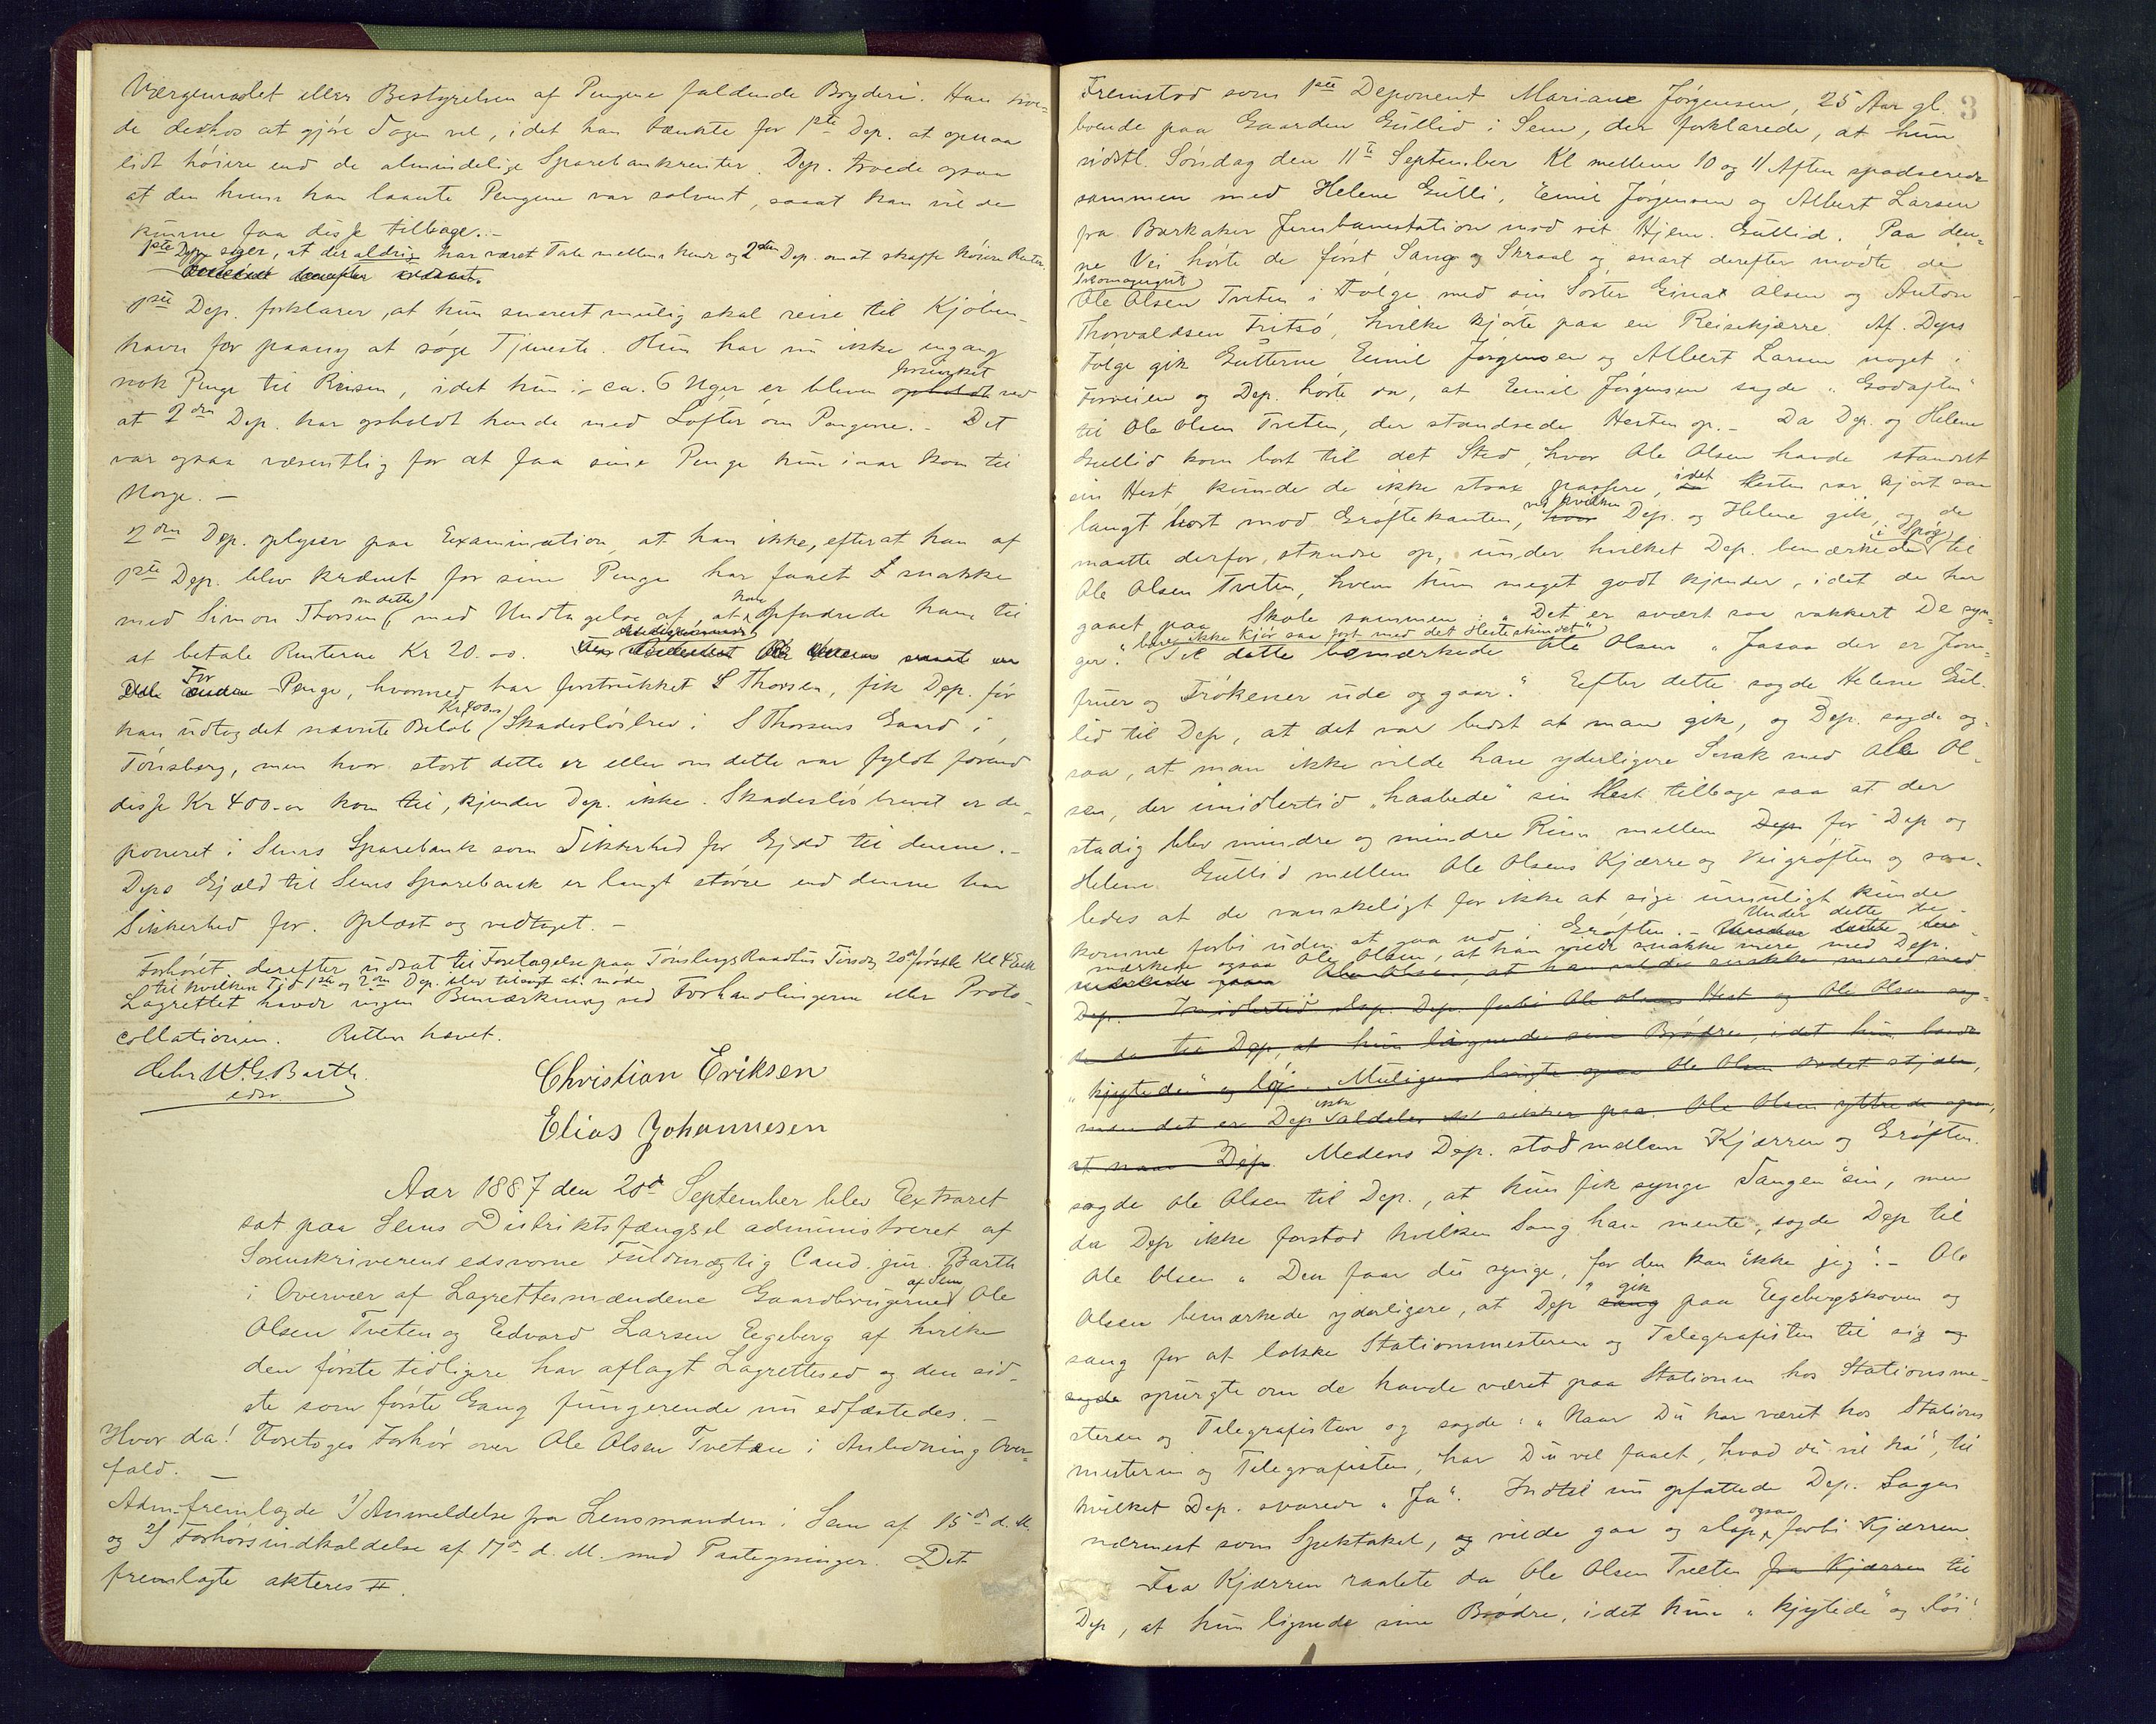 Værgemaalet eller Bestyrelsen af Pengene faldende Bryderi. Han troe-
de deshos at gjøre Sagen vel, idet han tænkte for 1ste Dep. at opnaa
lidt høiere end de almindelige Sparebankrenter. Dep. troede ogsaa
at den hvem han laante Pengene var solvent, saaat han vilde
kunne faa disse tilbage.-
1ste Dep. siger, at der aldrig har været Tale mellem hende og 2den Dep. om at skaffe høiere Renter.
1ste Dep. forklarer, at hun snarest mulig skal reise til Kjøben-
havn for paany at søge Tjeneste. Hun har nu ikke engang
nok Penge til Reisen, idet hun i ca. 6 Uger er bleven opholdt ved
at 2den Dep. har opholdt hende med Løfter om Pengene.- Det
var ogsaa væsentlig for at faa sine Penge hun iaar kom til
Norge.-
2den Dep. oplyser paa Examination, at han ikke, efterat han af
1ste Dep. blev krævet for sine Penge har faaet snakke
med Simon Thorsen om dette, med Undtagelse af, at han opfordrede ham til
at betale Renterne Kr 20.00.
For Penge, hvormed har forstrukket S Thorsen, fik Dep. før
han udtog det nævnte Beløb Kr 400.00 Skadesløsbrev i S Thorsens Gaard i
Tønsberg, men hvor stort dette er eller om dette var fyldt førend
disse Kr 400.00 kom til, kjender Dep. ikke. Skadesløsbrevet er de-
poneret i Sems Sparebank som Sikkerhed for Gjæld til denne.-
Deps Gjæld til Sems Sparebank er langt større end denne har
Sikkerhed for. Oplæst og vedtaget.-
Forhøret derefter udsat til Foretagelse paa Tønsbergs Raadhus Tirsdag 20de førstk. Kl 4 Eft.
til hvilken Tid 1ste og 2den Dep. blev tilsagt at møde
Lagrettet havde ingen Bemærkning ved Forhandlingerne eller Proto-
collationen. Retten hævet.
W. G. Barth
edsv.
Christian Eriksen
Elias Johannesen
Aar 1887 den 20de September blev Extraret
sat paa Sems Distriktsfængsel administreret af
Sorenskriverens edsvorne Fuldmægtig Cand. jur. Barth
i Overvær af Lagrettesmændene Gaardbrugerne af Sem Ole
Olsen Tveten og Edvard Larsen Eegeberg af hvilke
den første tidligere har aflagt Lagretteed og den sid-
ste som første Gang fungerende nu edfæstedes.-
Hvor da! Foretoges Forhør over Ole Olsen Tveten i Anledning Over-
fald.-
Adm. fremlagde 1/ Anmeldelse fra Lensmanden i Sem af 15de d. M.
og 2/ Forhørsindkaldelse af 17de d. M. med Paategninger. Det
fremlagte akteres #.
3
Fremstod som 1ste Deponent Mariane Jørgensen, 25 Aar gl.
boende paa Gaarden Gullid i Sem, der forklarede, at hun
sidstl. Søndag den 11te September Kl mellem 10 og 11 Aften spadserede
sammen med Helene Gulli, Emil Jørgensen og Albert Larsen
fra Barkaker Jernbanestation mod sit Hjem Gullid. Paa den-
ne Vei hørte de først Sang og Skraal og snart derefter mødte de
Ole Olsen Tveten i Følge med sin Søster Gina Olsen og Anton
Thorvaldsen Fritsø, hvilke kjørte paa en Reisekjærre. Af Deps
Følge gik Gutterne Emil Jørgensen og Albert Larsen noget i
Forveien og Dep. hørte da, at Emil Jørgensen sagde "Godaften"
til Ole Olsen Tveten, der standsede Hesten op.- Da Dep. og Helene
Gullid kom bort til det Sted, hvor Ole Olsen havde standset
sin Hest kunde de ikke strax passere, idet Hesten var kjørt saa
langt bort mod Grøftekanten, ved hvilken Dep. og Helene gik, og de
maatte derfor standse op, under hvilket Dep. bemærkede i Spøg til
Ole Olsen Tveten, hvem hun meget godt kjender, idet de har
gaaet paa Skole sammen: "Det er svært saa vakkert De syn-
ger." bare ikke kjør saa fort med det Hesteskindet"
Til dette bemærkede Ole Olsen "Jasaa der er Jom-
fruer og Frøkener ude og gaar." Efter dette sagde Helene Gul-
lid til Dep, at det var bedst at man gik, og Dep. sagde og-
saa, at man ikke vilde have yderligere Snak med Ole Ol-
sen, der imidlertid "haabede" sin Hest tilbage saa at der
stadig blev mindre og mindre Rum mellem Dep for Dep og
Helene Gullid mellem Ole Olsens Kjærre og Veigrøften og saa-
ledes at de vanskeligt for ikke at sige umuligt kunde
komme forbi uden at gaa ud i Grøften.- Under dette be-
mærkede ogsaa Ole Olsen, at han vilde snakke mere med Dep.
Ole Olsen, at han vilde snakke mere med
Dep. Imidlertid slap Dep. forbi Ole Olsens Hest og Ole Olsen sag-
de da til Dep, at hun lignede sine Brødre, idet hun baade
"kjytede" og løi. Muligens brugte ogsaa Ole Olsen Ordet stjæle,
men det er Dep ikke aldeles sikker paa. Ole Olsen yttrede ogsaa,
at naar Dep. Medens Dep. stod mellem Kjærren og Grøften
sagde Ole Olsen til Dep., at hun fik synge Sangen sin, men
da Dep ikke forstod hvilken Sang han mente, sagde Dep til
Ole Olsen "Den faar du synge, for den kan ikke jeg".- Ole
Olsen bemærkede yderligere, at Dep gik paa Eegebergskoven og
sang for at lokke Stationsmesteren og Telegrafisten til sig og
sagde spurgte om de havde været paa Stationen hos Stationsme-
steren og Telegrafisten og sagde: "Naar Du har været hos Stations
mesteren og Telegrafisten, har Du vel faaet, hvad du vil ha", til
hvilket Dep. svarede "Ja". Indtil nu opfattede Dep. Sagen
nærmest som Spektakel, og vilde gaa og slap ogsaa forbi Kjærren.
Fra Kjærren raabte da Ole Olsen Tveten fra Kjærren til
Dep, at hun lignede sine Brødre, idet hun "kjytede" og løi".